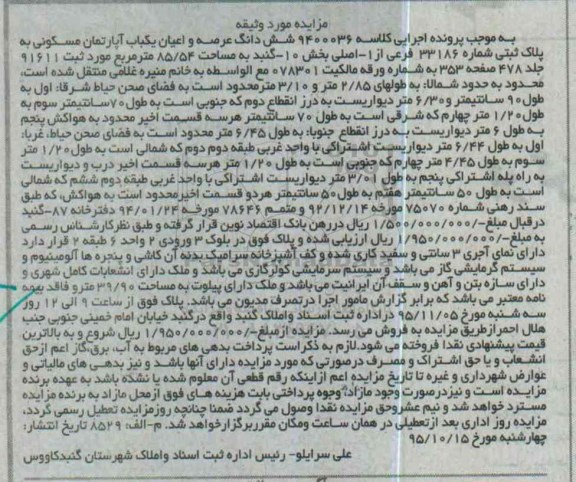 مزایده مورد وثیقه
به موجب پرونده اجرایی کلاسه ۹۴۰۰۰۳۶ شش دانگ عرصه و اعیان یکباب آپارتمان مسکونی به
پلاک ثبتی شماره ۳۳۱۸۶ فرعی از۱-اصلی بخش ۱۰-گنبد به مساحت ۸۵/۵۴ مترمربع مورد ثبت ۹۱۶۱۱
جلد ۴۷۸ صفحه ۳۵۳ به شماره ورقه مالکیت ۰۷۸۳۰۱ مع الواسطه به خانم منیره غلامی منتقل شده است،
محدود به حدود شمالا: به طولهای ۲/۸۵ متر و ۳/۱۰ مترمحدود است به فضای صحن حیاط شرقا: اول به
طول۹۰ سانتیمتر و۶/۳۰ متر دیواریست به درز انقطاع دوم که جنوبی است به طول ۷۰سانتیمتر سوم به
طول۱/۲۰ متر چهارم که شرقی است به طول ۷۰ سانتیمتر هرسه قسمت اخیر محدود به هواکش پنجم
به طول ۶ متر دیواریست به درز انقطاع جنوبا: به طول ۶/۴۵ متر محدود است به فضای صحن حیاط، غربا:
اول به طول ۶/۴۴ متر دیواریست اشتراکی با واحد غربی طبقه دوم دوم که شمالی است به طول۱/۲۰ متر
سوم به طول ۴/۴۵ متر چهارم که جنوبی است به طول ۱/۲۰ متر هرسه قسمت اخیر درب و دیواریست
به راه پله اشتراکی پنجم به طول ۳/۰۱ متر دیواریست اشتراکی با واحد غربی طبقه دوم ششم که شمالی
است به طول ۵۰ سانتیمتر هفتم به طول ۵۰ سانتیمتر هردو قسمت اخیرمحدود است به هواکش، که طبق
سند رهنی شماره ۷۵۰۷۰ مورخه ۹۲/۱۲/۱۴ و متمم ۷۸۶۴۶ مورخه ۹۴/۰۱/۲۴ دفترخانه ۸۷-گنبد
درقبال مبلغ/-۱/۵۰۰/۰۰۰/۰۰۰ ریال دررهن بانک اقتصاد نوین قرار گرفته و طبق نظرکارشناس رسمی
به مبلغ/-۱/۹۵۰/۰۰۰/۰۰۰ ریال ارزیابی شده و پلاک فوق در بلوک ۳ ورودی ۲ واحد ۶ طبقه ۲ قرار دارد
دارای نمای آجری ۳ سانتی و سفید کاری شده و کف آشپزخانه سرامیک بدنه آن کاشی و پنجره ها آلومینیوم و
سیستم گرمایشی گاز می باشد و سیستم سرمایشی کولرگازی می باشد و ملک دارای انشعابات کامل شهری و
دارای سازه بتن و آهن و سقف آن ایرانیت می باشد و ملک دارای پیلوت به مساحت ۳۹/۹۰ مترو فاقد بیمه
نامه معتبر می باشد که برابر گزارش مامور اجرا درتصرف مدیون می باشد. پلاک فوق از ساعت ۹ الی ۱۲ روز
سه شنبه مورخ ۹۵/۱۱/۰۵ دراداره ثبت اسناد واملاک گنبد واقع درگنبد خیابان امام خمینی جنوبی جنب
هلال احمرازطریق مزایده به فروش می رسد. مزایده ازمبلغ/-۱/۹۵۰/۰۰۰/۰۰۰ ریال شروع و به بالاترین
قیمت پیشنهادی نقدا فروخته می شود.لازم به ذکراست پرداخت بدهی های مربوط به آب، برق،گاز اعم ازحق
انشعاب و یا حق اشتراک و مصرف درصورتی که مورد مزایده دارای آنها باشد و نیز بدهی های مالیاتی و
عوارض شهرداری و غیره تا تاریخ مزایده اعم ازاینکه رقم قطعی آن معلوم شده یا نشده باشد به عهده برنده
مزایده است و نیزدرصورت وجود مازاد، وجوه پرداختی بابت هزینه های فوق ازمحل مازاد به برنده مزایده
مسترد خواهد شد و نیم عشروحق مزایده نقدا وصول می گردد ضمنا چنانچه روزمزایده تعطیل رسمی گردد،
مزایده روز اداری بعد ازتعطیلی در همان ساعت ومکان مقرربرگزارخواهد شد. م-الف: ۸۵۲۹ تاریخ انتشار:
چهارشنبه مورخ ۹۵/۱۰/۱۵
علی سرایلو- رئیس اداره ثبت اسناد واملاک شهرستان گنبدکاووس